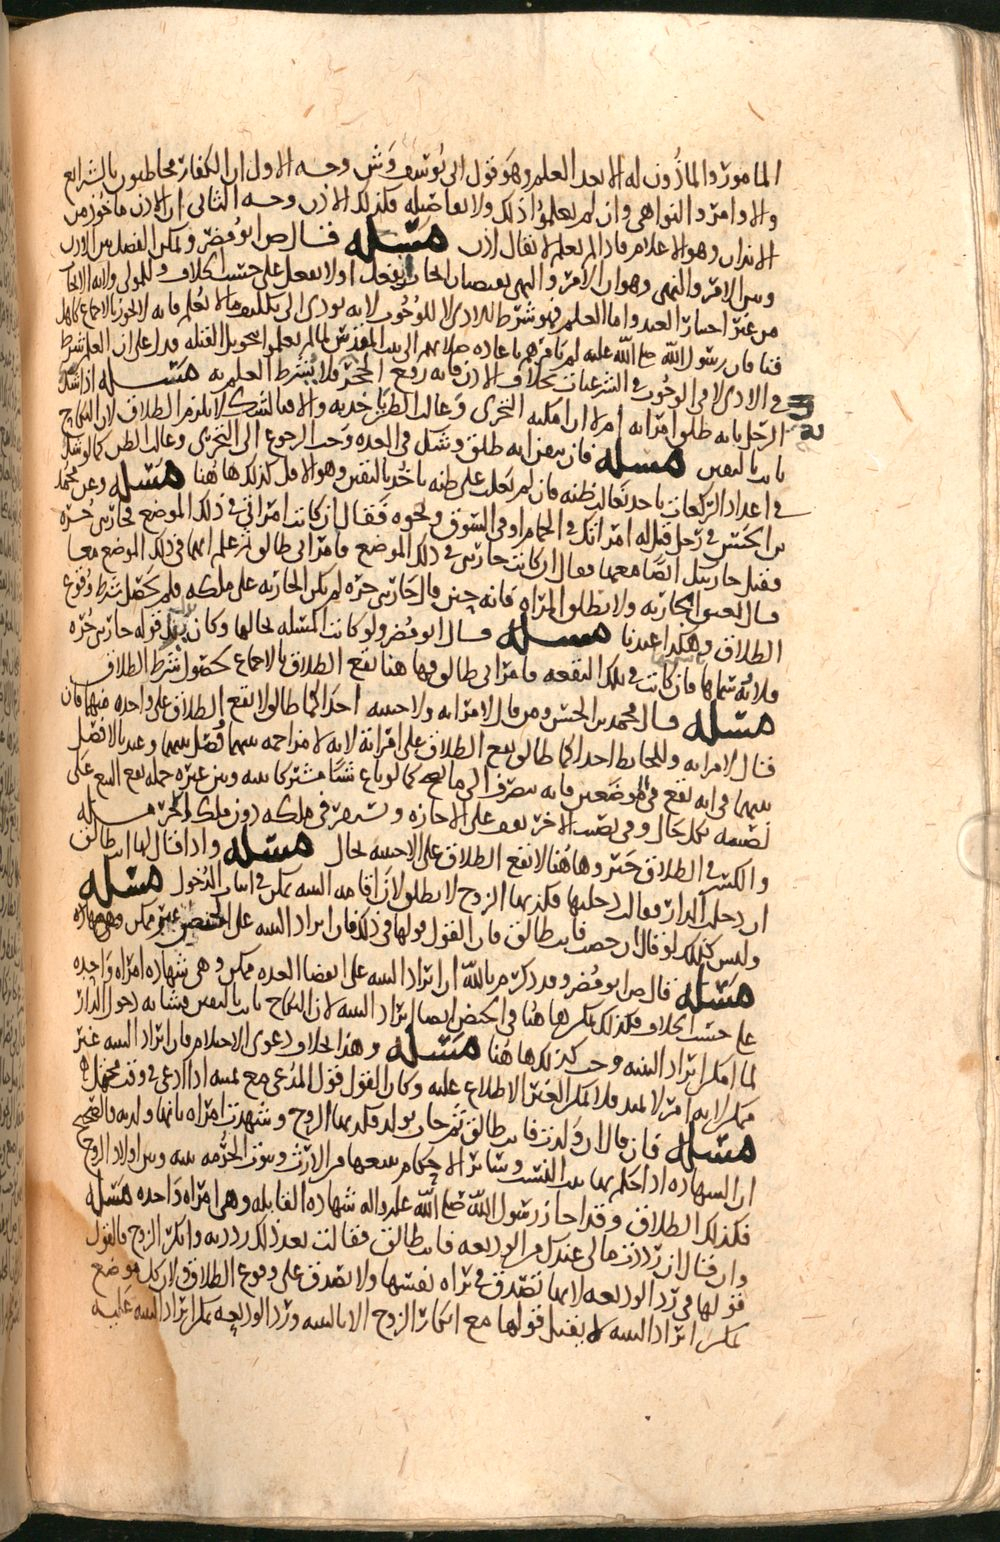 المامور والماذون له الا بعد العلم وهو قول ابي يوسف وش وجه الاول ان الكفار مخاطبون بالشرايع
والاوامر والنواهي وان لم يعلموا ذلك ولا تفاصيله فكذلك الاذن وجه الثاني ان الاذن ماخوذ من
الايذان وهو الاعلام فاذا لم يعلم لا يقال اذن مسئله قال ص ابو مضر ويمكن الفصل بين الاذن
وبين الامر والنهي وهو ان الامر والنهي يقتضيان ايجاب الفعل او لا يفعل على حسب الخلاف والمولى ولاية الايجاب
من غير اختيار العبد واما العلم فهو شرط للادى لا للوجوب لانه يودي الى تكليف ما لا يعلم فانه لا يجوز بالاجماع كاهل
قبا فان رسول الله صلى الله عليه لم يامرهم باعاده صلاتهم الى بيت المقدس لما لم يعلموا بتحويل القبله فدل على ان العلم شرط
في الادى لا في الوجوب في الشرعيات بخلاف الاذن فانه رفع الحجر فلا يشترط العلم به مسئله اذا شك
الرجل بانه طلق امراته ام لا ان امكنه التحرى وغالب الظن ياخذ به والا فبالشك لا يلزم الطلاق لان النكاح
ثابت باليقين مسئله فان تيقن انه طلق وشك في العدد وجب الرجوع الى التحرى وغالب الظن كما لو شك
في اعداد الركعات ياخذ بغالب ظنه فان لم يغلب على ظنه ياخذ باليقين وهو الاقل كذلك هاهنا مسئله وعن محمد
بن الحسن في رجل قيل له امراتك في الحمام او في السوق ونحوه فقال ان كانت امراتي في ذلك الموضع فجاريتي حره
وقيل جاريتك ايضا معها فقال ان كانت جاريتي في ذلك الموضع فامراتي طالق ثم علم انهما في ذلك الموضع معا
قال تعتق الجاريه ولا تطلق المراه فانه حين قال جاريتي حره لم تكن الجاريه على ملكه فلم يحصل شرط وقوع
الطلاق وهكذا عندنا مسئله قال ابو مضر ولو كانت المسئله بحالها وكان بدل قوله جاريتي حره
فلانه سماها فان كانت في تلك البقعه فامراتي طالق فهاهنا يقع الطلاق بالاجماع لحصول شرط الطلاق
مسئله قال محمد بن الحسن ومن قال لامراته ولاجنبيه احداكما طالق لا يقع الطلاق على واحده منهما فان
قال لامراته وللحايط احداكما طالق يقع الطلاق على امراته لانه لا مزاحمه بينهما فصل بينهما وعندنا لا فصل
بينهما في انه يقع في الموضعين فانه ينصرف الى ما يصح كما لو باع شيئا مشتركا بينه وبين غيره جمله يقع البيع على
نصيبه بكل حال وفي نصيب الاخر يقف على الاجازه وينصرف في ملكه دون ملك الاخر مسئله
والكسب في الطلاق خير وهاهنا لا يقع الطلاق على الاجنبيه بحال مسئله واذا قال لها انت طالق
ان دخلت الدار وقالت دخلتها فكذبها الزوج لا يطلق لان اقامه البينه يمكن في اثبات الدخول مسئله
وليس كذلك لو قال ان حضت فانت طالق فان القول قولها في ذلك فان ايراد البينه على الحيض غير ممكن
مسئله قال ص ابو مضر وقد ذكر م بالله ان ايراد البينه على انقضا العده ممكن وهي شهاده امراه واحده
على حسب الخلاف فكذلك يمكن هاهنا في الحيض ايضا ايراد البينه لان النكاح ثابت باليقين فشابه دخول الدار
لما امكن ايراد البينه وجب كذلك هاهنا مسئله وهذا بخلاف دعوى الاحتلام فان ايراد البينه غير
ممكن لانه امر فلا يمكن الغير الاطلاع عليه وكان القول قول المدعي مع يمينه اذا ادعى في وقت يحتمل
مسئله فان قال ان ولدت فانت طالق ثم جات بولد فكذبها الزوج وشهدت امراه بانها ولدته فالصحيح
ان الشهاده اذا حكم بها ثبت النسب وساير الاحكام يتبعها من الارث وثبوت الحرمه بينه وبين اولاد الزوج
فكذلك الطلاق وقد اجاز رسول الله صلى الله عليه واله شهاده القابله وهي امراه واحده مسئله
وان قال ان رددت مالي عندك من الوديعه فانت طالق فقالت بعد ذلك رددته وانكر الزوج فالقول
قولها في رد الوديعه لانها تصدق في براه نفسها ولا تصدق على وقوع الطلاق لان كل موضع
يمكن ايراد البينه لا يقبل قولها مع انكار الزوج الا بالبينه ورد الوديعه يمكن ايراد البينه عليه